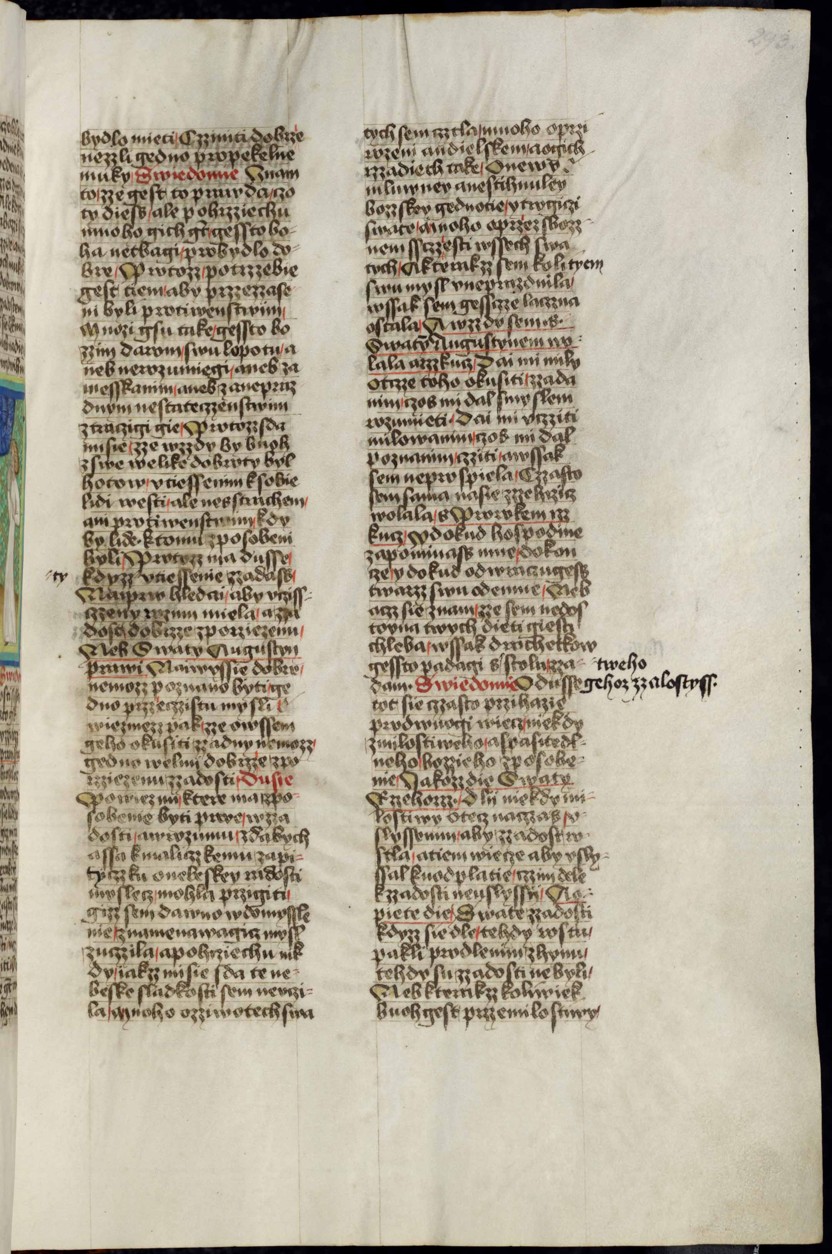 293.
bydlo mieti, Czziniti dobrze
nezzli gedno propekelne
muky, Swiedomie Znam
to, zze gest to prawda, czo
ty dies, ale pohrziechu
mnoho gich gt, gessto bo-
ha netbagi, pro bydlo do-
bre, Protozz, potrzzebie
gest tiem, aby przzezzase
ni byli protiwenstwim,
Mnozi gsu take, gessto bo
zzim darom, swu lopotu, a
neb nerozumiegi, aneb za
messkanim, aneb zanepraz
dnym nestateczzenstwim
ztraczigi gie, Protozz sda
mi sie, zze wzzdy by buoh
zswe welike dobroty byl
hotow, vtiessenim k sobie
lidi westi, ale ne sstrachem,
ani protiwenstwim, kdy
by lide k tomu zposobeni
byli, Protozz ma dusse,
-ty
kdyzz vtiessenie zzadass,
Naiprw hledai, aby vczisst-
czzeny rozum miela, a zza
dost dobrzze zporziezenu,
Neb Swaty Augustyn
prawi Naiwyssie dobre,
nemozz poznano byti, ge
dno przzeczzistu mysli
wiezmezz pak, zze owssem
geho okusiti zzadny nemozz,
gedno welmi dobrzze zpo
rzziezenu zzadosti, Dusie
Powiez mi, ktere ma zpo-
sobenie byti prwe, w zza
dosti, a w rozumu, zdabych
assa k maliczzkemu zapi-
tyczku onebeskey radosti
myslecz, mohla przigiti,
gizz sem dawno w domyssle
nie, znamenawagicz mysl
zuczzila, a pohrziechu nik
dy, iakzz mi sie sda te ne-
beske sladkosti sem nevczi-
la, Mnoho ozziwotech swa
tych sem czztla, mnoho oprzi
rozeni andielskem, a o gich
rzzadiech take, O newy-
mluwney a nestihmuley
bozzskey gednotie, y trogiczi
swate, Mnoho oprzezbozz-
nem sstiesti wssech swa
tych, A kterak zz sem koli tyem
swu mysl vneprazdnila,
wssak sem gesstie laczna
ostala, A wzzdy sem s
Swatym Augustynem wo-
lala arzkucz, Dai mi mily
Otczze toho okusiti, zzada
nim, czos mi dal smyslem
rozumieti, Dai mi vczziti
milowanim, czos mi dal
poznanim, czziti, a wssak
sem neprospiela, Czzasto
sem sama na sie zzehrzicz
wolala, s Prorokem rzz
kucz, Y dokud hospodine
zapominass mne, dokon
cze, y dokud odwraczugess
twarz swu odemne, Neb
acz sie znam, zze sem nedos
toyna twych dieti giesti
chleba, wssak drobetkow
gessto padagi s stolu, zza- -tweho
dam. Swiedomie O dusse gehoz zzalostyss.
tot sie czzasto przihazie
prodwuogi wiecz, niekdy
zmilostiweho, a spasitedl-
neho bozieho zposobe-
nie, Iakozz die Swaty
Rzehorz, Dlii niekdy mi-
lostiwy otecz naczas, v-
slyssenim, aby zzadost w-
stla, a tiem wiecze aby vsly-
ssal k uodplatie, czzim dele
k zzadosti neuslyssy, Ne-
piete die, Swate zzadosti
kdyzz sie dle, tehdy rostu,
pakli prodlenim zhynu,
tehdy su zzadosti nebyli,
Neb kterakzz koliwiek
buoh gest przzemilostiwy,